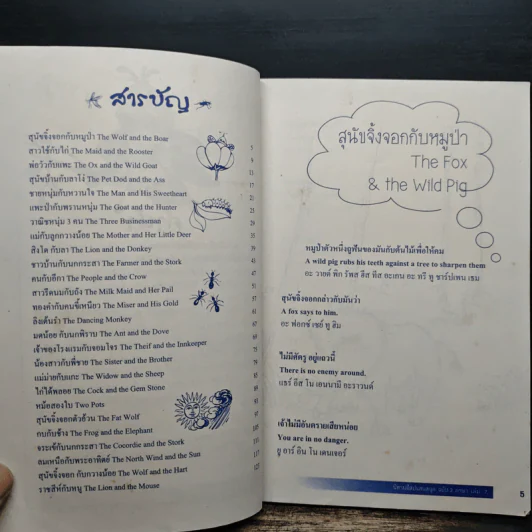 สารบัญ
สุนัขจิ้งจอกกับหมูป่า The Wolf and the Boar
สาวใช้กับไก่ The Maid and the Rooster
พ่อวัวกับแพะ The Ox and the Wild Goat
สุนัขบ้านกับลาโง่ The Pet Dod and the Ass
ชายหนุ่มกับหวานใจ The Man and His Sweetheart
แพะป่ากับพรานหนุ่ม The Goat and the Hunter
วาณิชหนุ่ม 3 คน The Three Businessman
แม่กับลูกกวางน้อย The Mother and Her Little Deer
สิงโต กับลา The Lion and the Donkey
ชาวบ้านกับนกกระสา The Farmer and the Stork
คนกับอีกา The People and the Crow
สาวรีดนมกับถัง The Milk Maid and Her Pail
ทองคำกับคนขี้เหนียว The Miser and His Gold
ลิงเต้นรำ The Dancing Monkey
มดน้อย กับนกพิราบ The Ant and the Dove
เจ้าของโรงแรมกับจอมโจร The Theif and the Innkeeper
น้องสาวกับพี่ชาย The Sister and the Brother
แม่ม่ายกับแกะ The Widow and the Sheep
ไก่ได้พลอย The Cock and the Gem Stone
หม้อสองใบ Two Pots
สุนัขจิ้งจอกตัวอ้วน The Fat Wolf
กบกับช้าง The Frog and the Elephant
จระเข้กับนกกระสา The Cocordie and the Stork
ลมเหนือกับพระอาทิตย์ The North Wind and the Sun
สุนัขจิ้งจอก กับกวางน้อย The Wolf and the Hart
ราชสีห์กับหนู The Lion and the Mouse
สุนัขจิ้งจอกกับหมูป่า
The Fox
& the Wild Pig
หมูป่าตัวหนึ่งถูฟันของมันกับต้นไม้เพื่อให้คม
A wild pig rubs his teeth against a tree to sharpen them
อะ วายด์ พิก รัพส ฮีส ทีส อะเกน อะ ทรี ทู ชาร์ปเพน เธม
สุนัขจิ้งจอกกล่าวกับมันว่า
A fox says to him.
อะ ฟอกซ์ เซย์ ทู ฮิม
ไม่มีศัตรู อยู่แถวนี้
There is no enemy around.
แธร์ อีส โน เอนนามี อะราวนด์
เจ้าไม่มีอันตรายเสียหน่อย
You are in no danger.
ยู อาร์ อิน โน เดนเจอร์
5